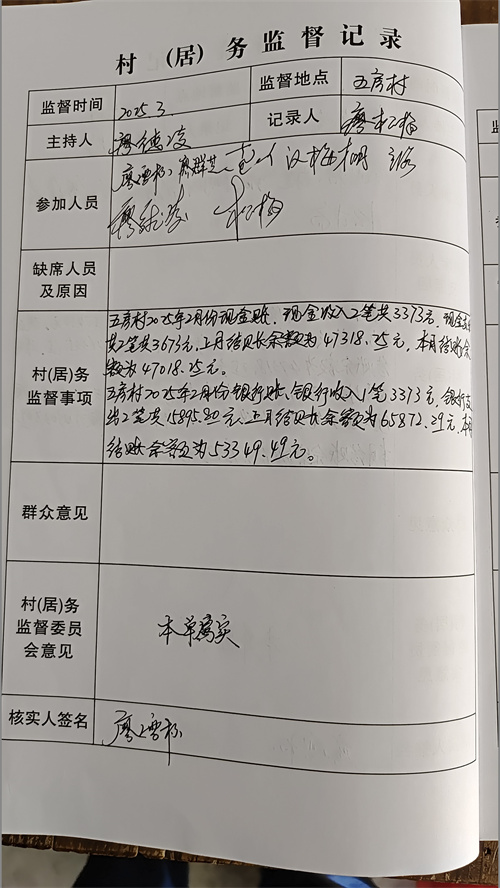 村（居）务监督记录
监督时间 2025.3. 监督地点 五彦村
主持人 廖德凌 记录人 廖松梅
参加人员 廖雪松 廖群芝
缺席人员及原因
村(居)务监督事项
五彦村2025年2月份现金账，现金收入2笔共3373元，现金支
共2笔共3673元，上月结账余额为47318.25元，本月结账余
额为47018.25元。
五彦村2025年2月份银行账、银行收入1笔3373元，银行支
出2笔共15895.80元，上月结账余额为65872.29元，本月
结账余额为53349.49元。
群众意见
村(居)务监督委员会意见 本单属实
核实人签名 廖雪松